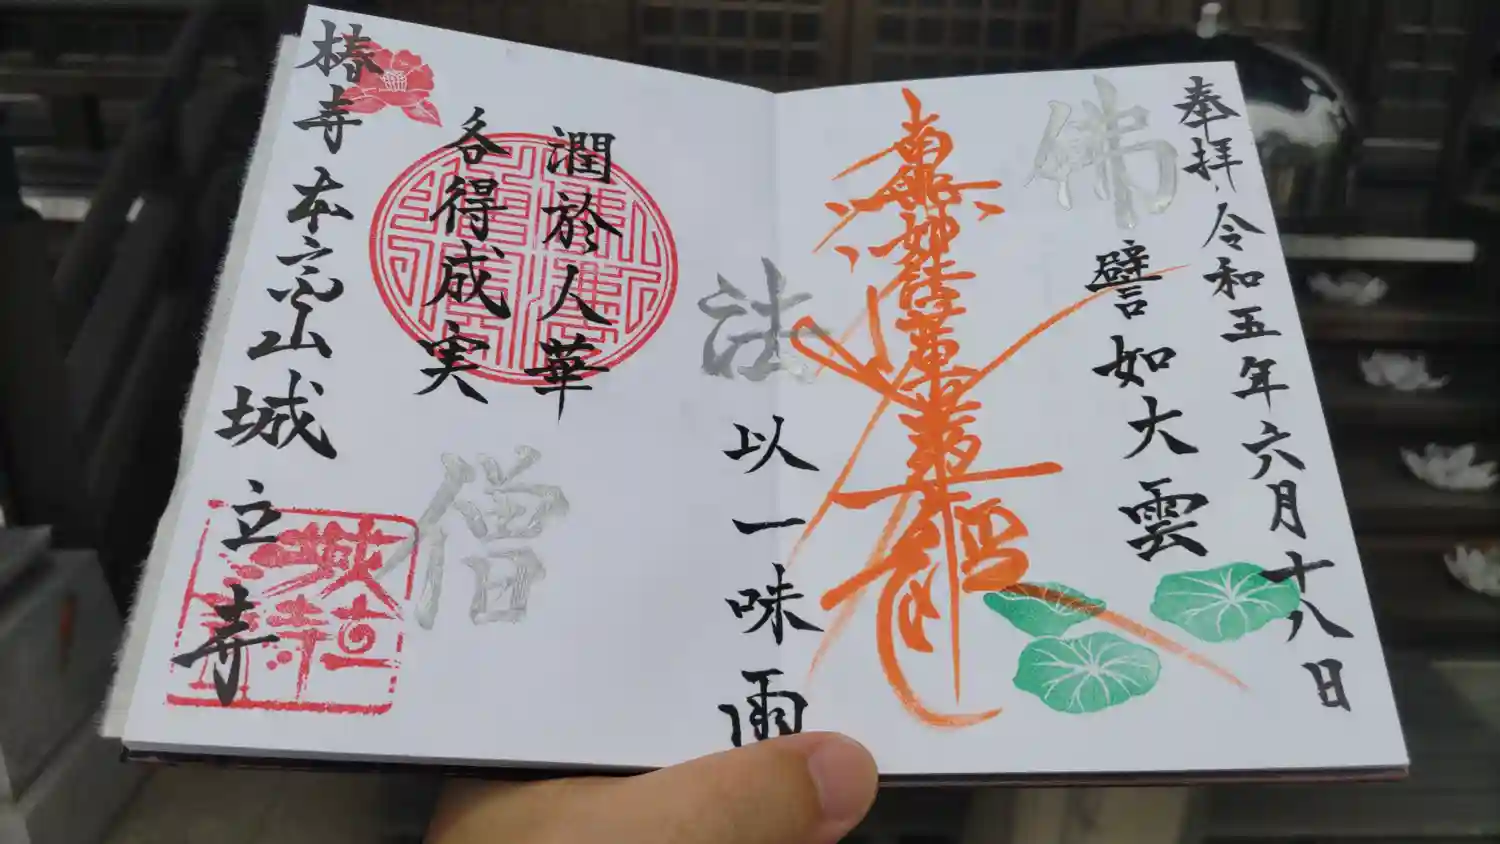 奉拝 令和五年六月十八日
佛
譬如大雲
南無妙法蓮華経
法
以一味雨
潤於人華
各得成実
僧
椿寺 本立山 城立寺
城立寺